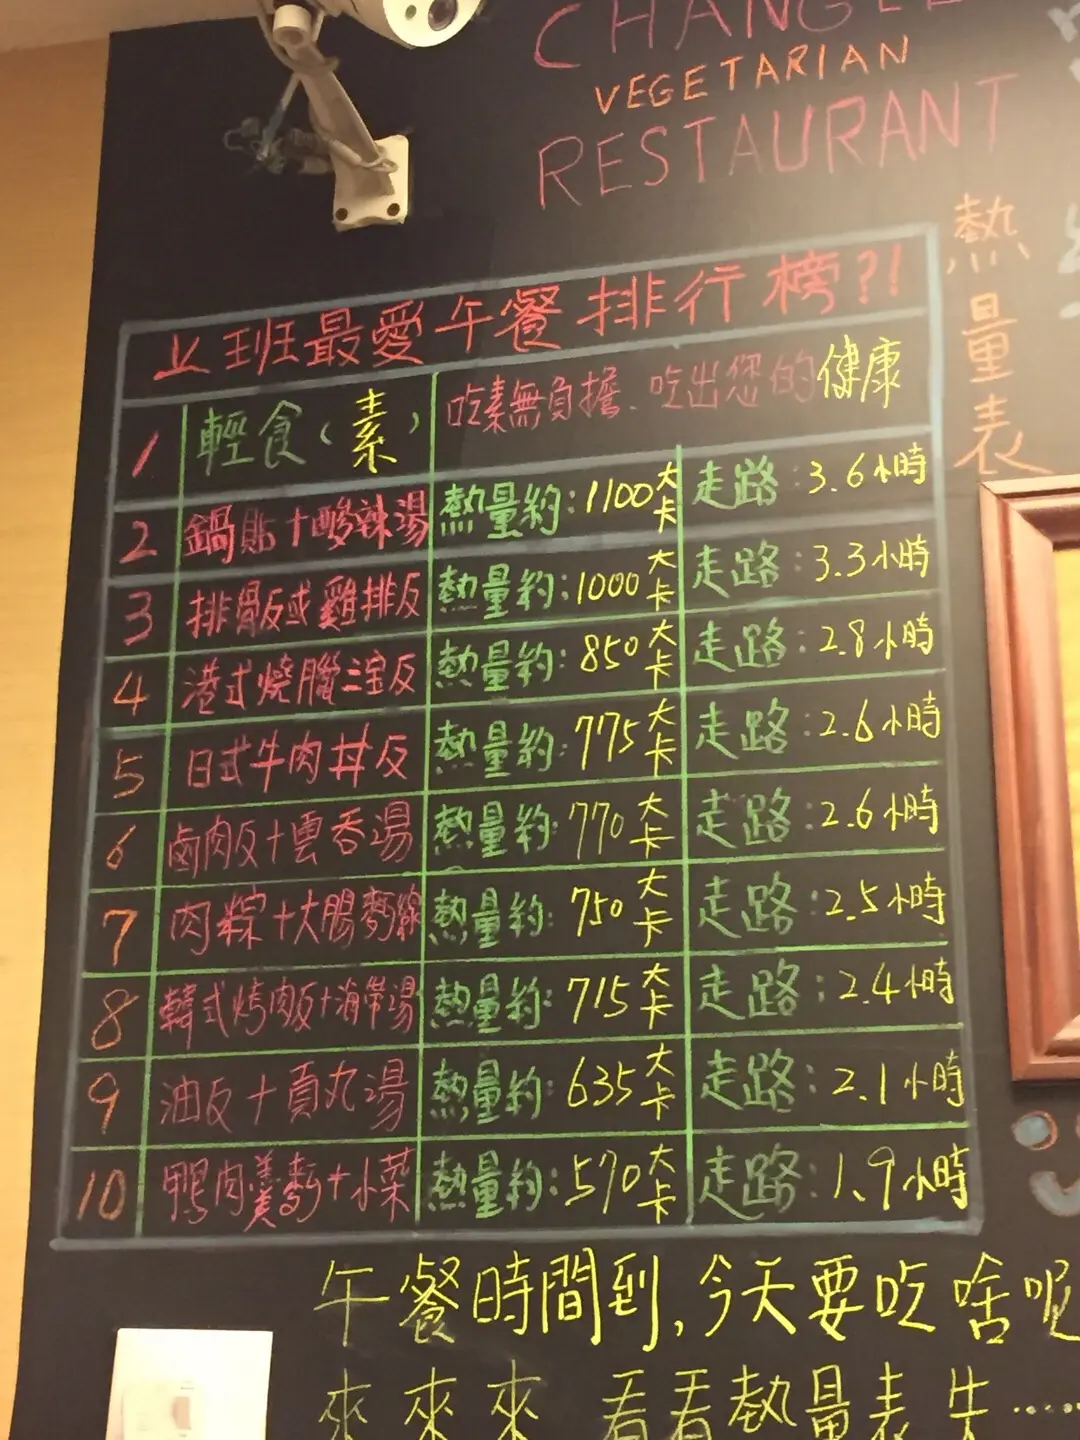 VEGETARIAN
RESTAURANT
熱量表
上班最愛午餐排行榜?!
1 輕食(素) 吃素無負擔.吃出您的健康
2 鍋貼+酸辣湯 熱量約:1100大卡 走路:3.6小時
3 排骨反或雞排反 熱量約:1000大卡 走路:3.3小時
4 港式燒臘三宝反 熱量約:850大卡 走路:2.8小時
5 日式牛肉丼反 熱量約:775大卡 走路:2.6小時
6 鹵肉反+雲吞湯 熱量約:770大卡 走路:2.6小時
7 肉粽+大腸麵線 熱量約:750大卡 走路:2.5小時
8 韓式烤肉反+海帶湯 熱量約:715大卡 走路:2.4小時
9 油反+貢丸湯 熱量約:635大卡 走路:2.1小時
10 鴨肉羹麵+小菜 熱量約:570大卡 走路:1.9小時
午餐時間到,今天要吃啥呢
來來來 看看熱量表先......